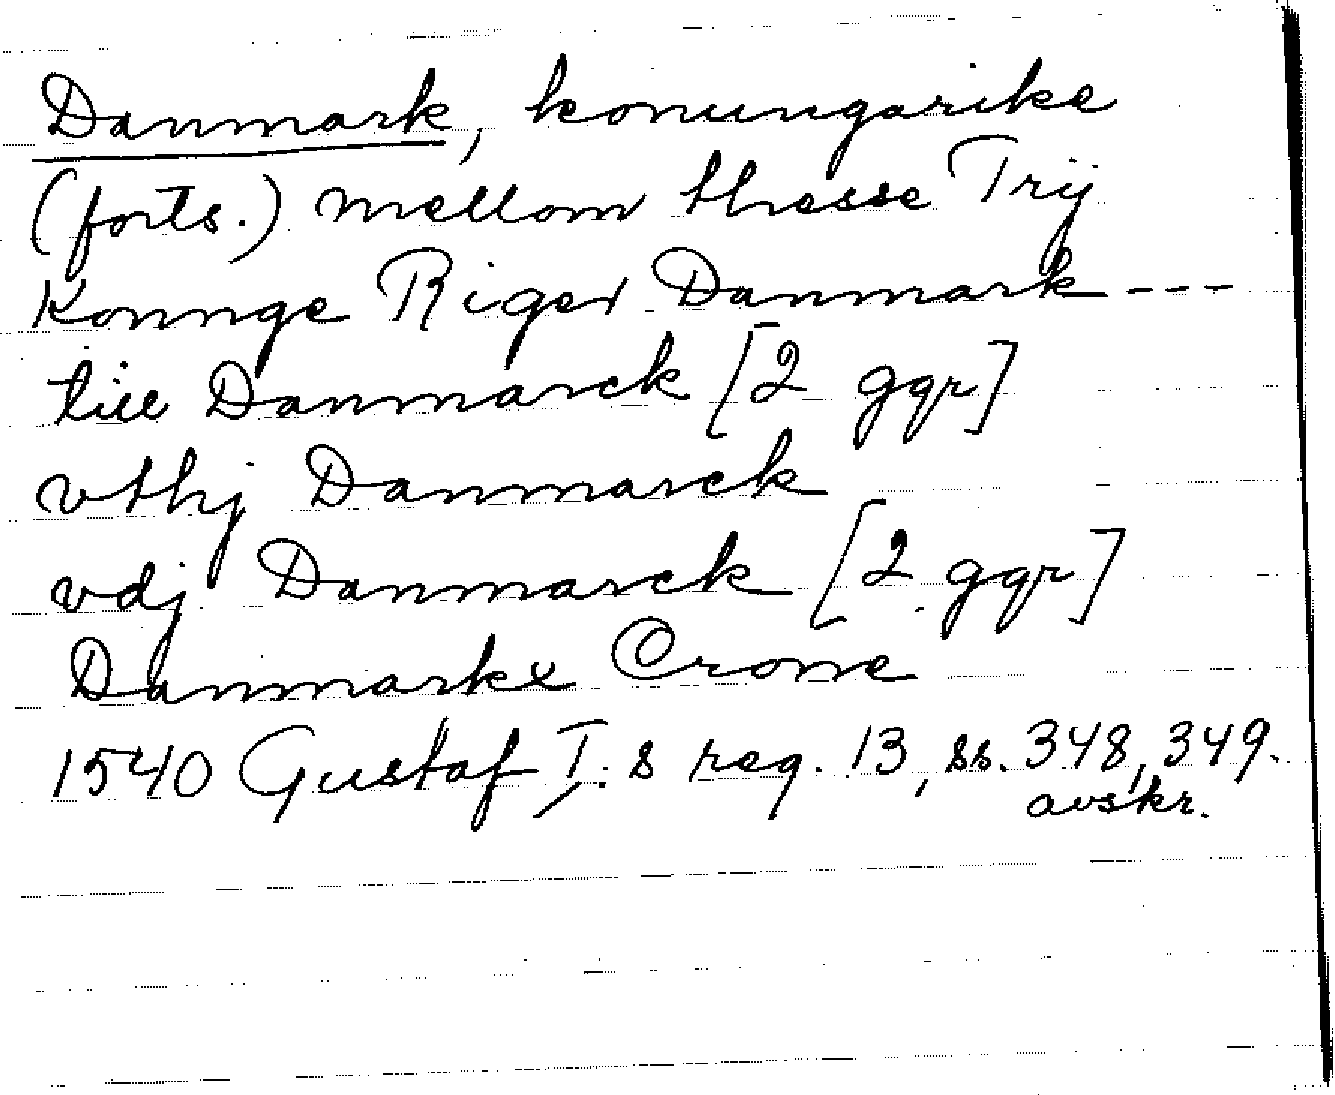 Danmark, konungarike
(forts.) mellom thesse Trij
Konnge Riger Danmark ---
till Danmarck [2 ggr]
vthj Danmarck
vdj Danmarck [2 ggr]
Danmarkx Crone
1540 Gustaf I:s reg. 13, ss. 348, 349.
avskr.